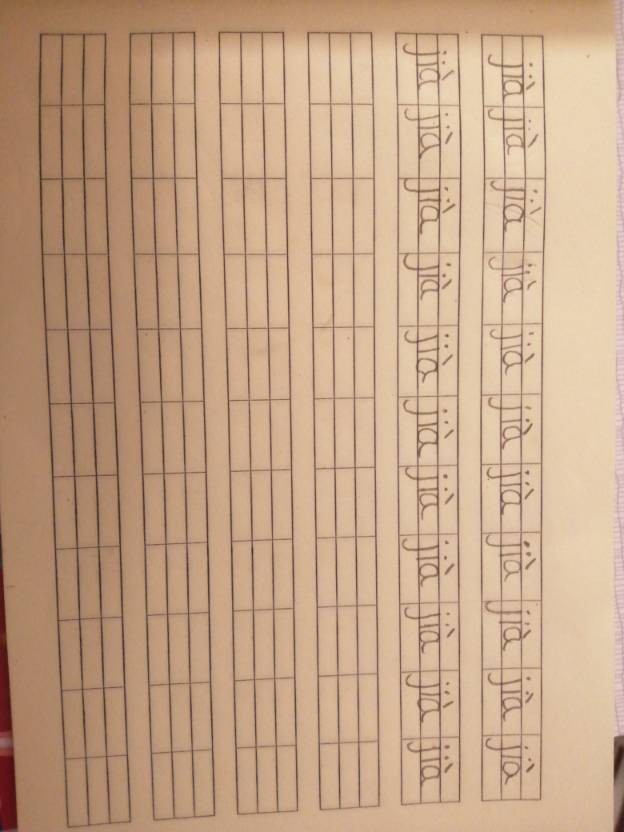 jià jià jià jià jià jià jià jià jià jià jià
jià jià jià jià jià jià jià jià jià jià jià